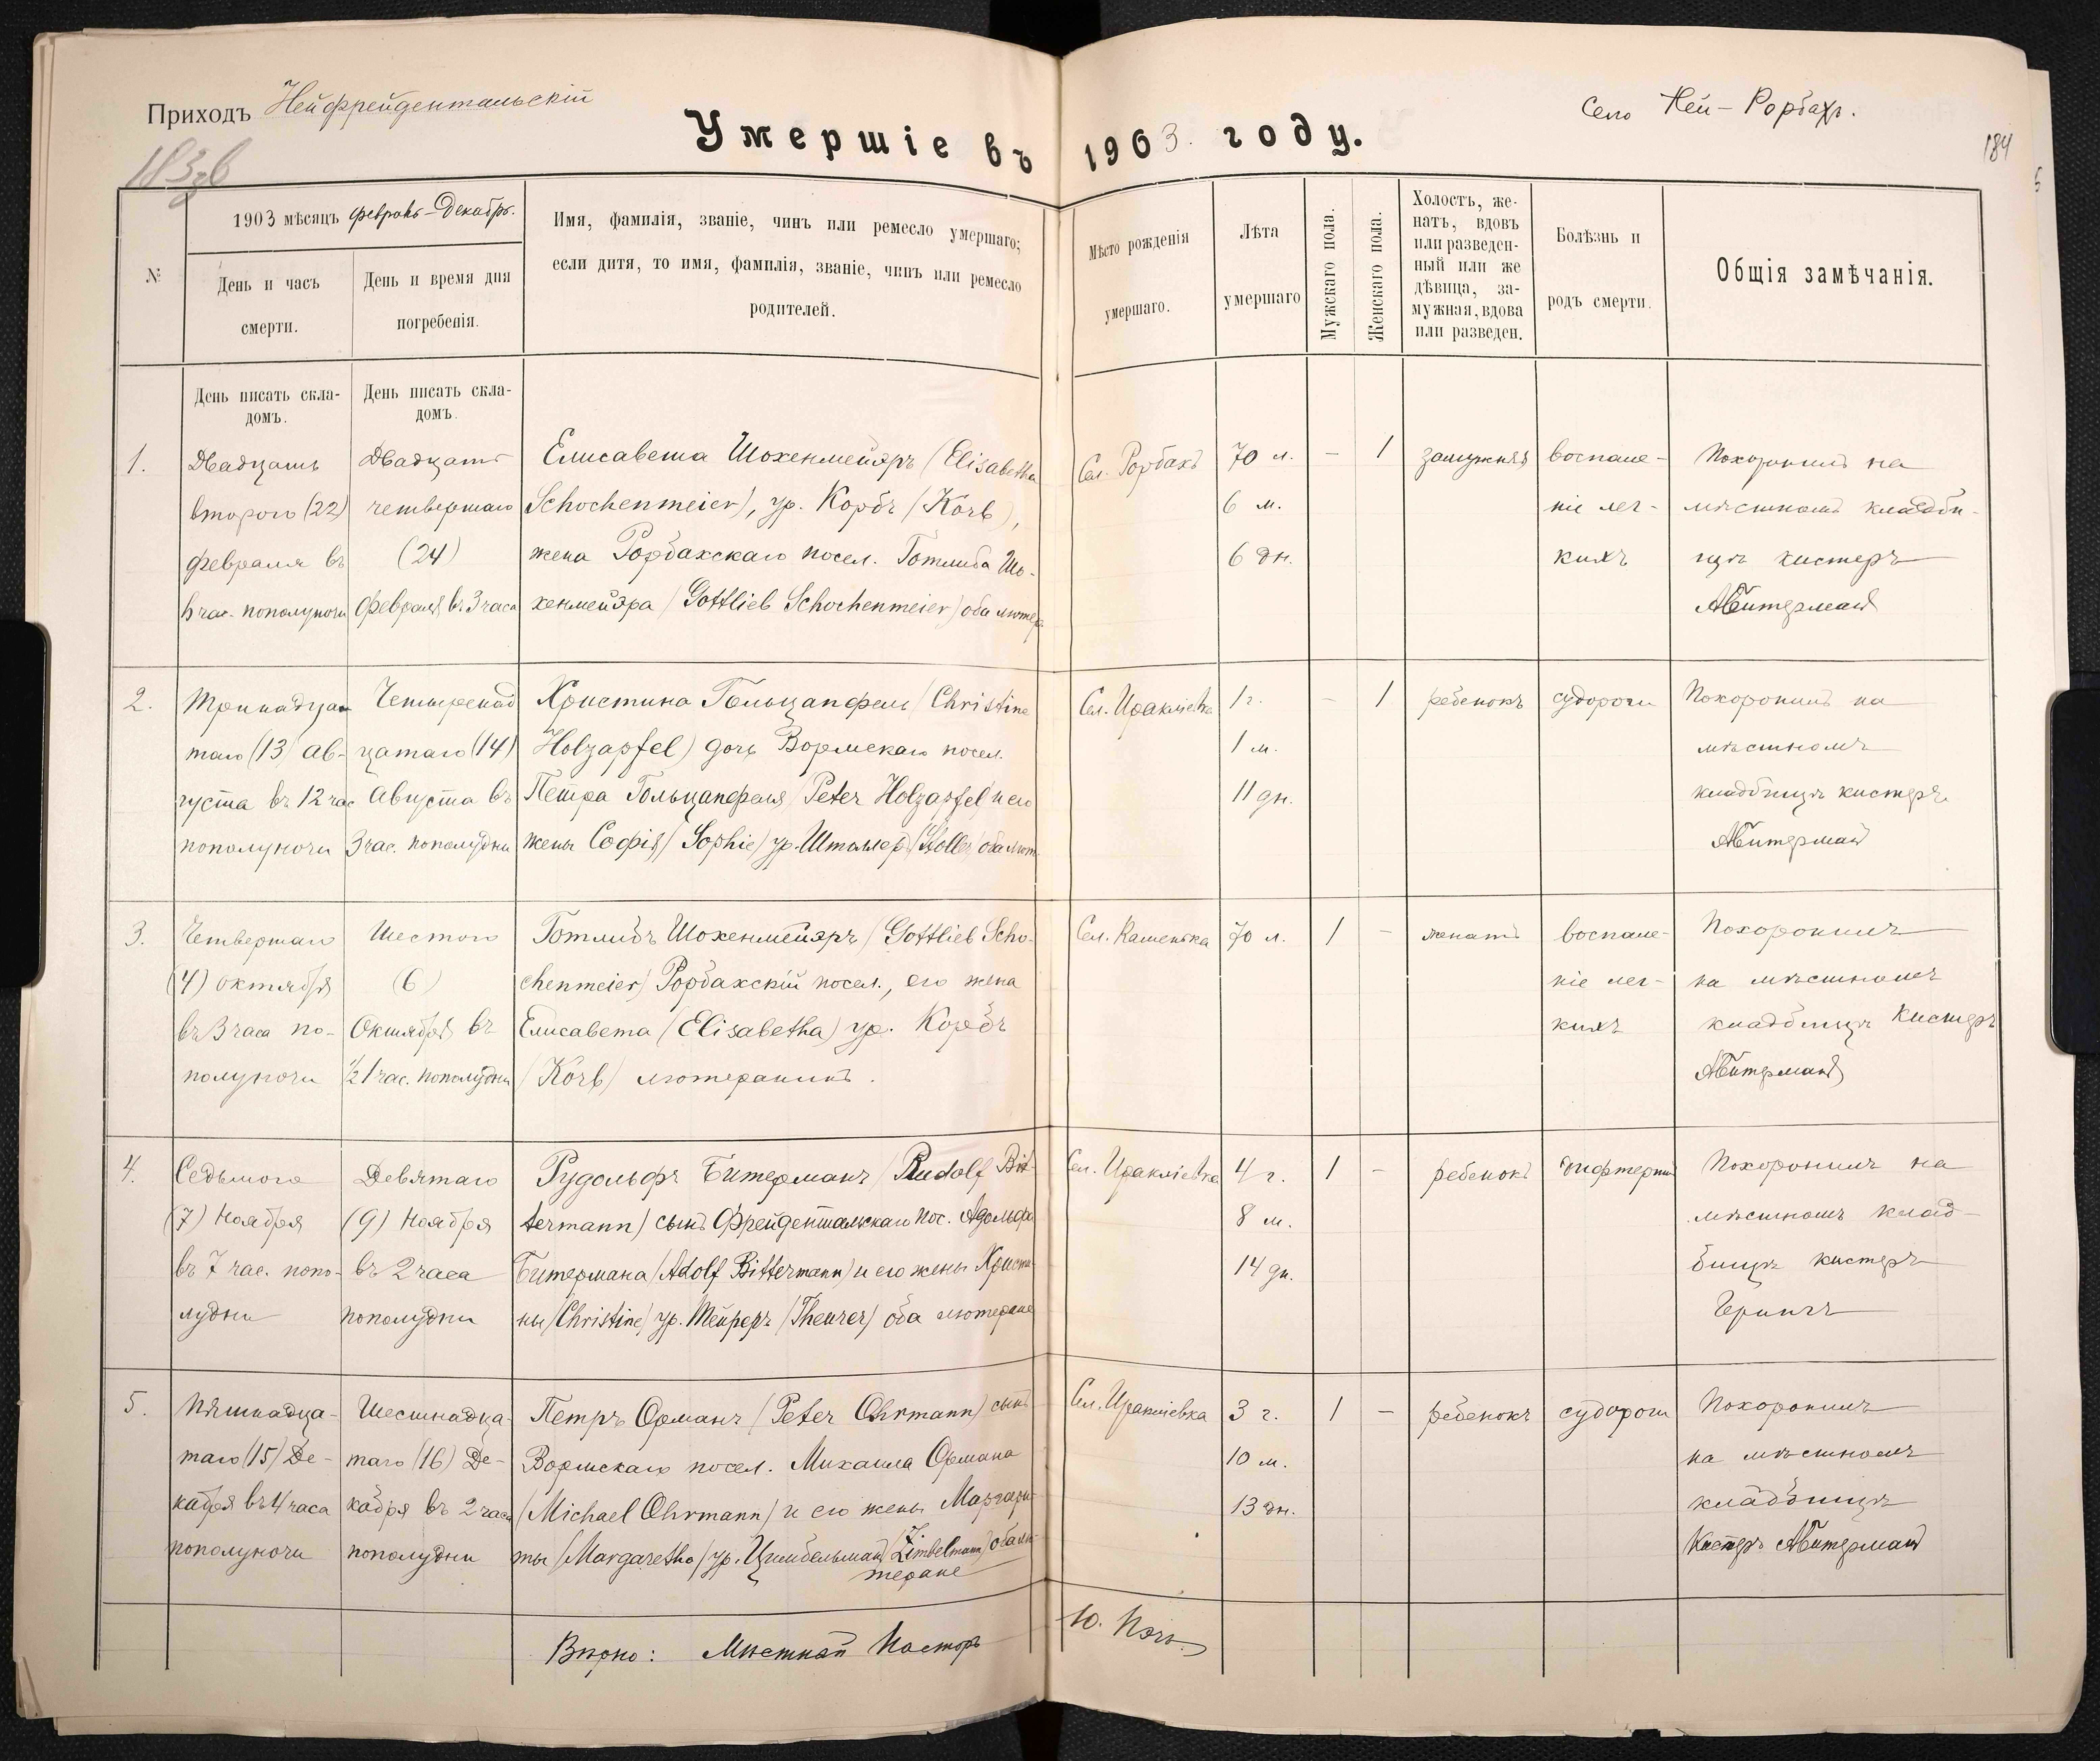 Приходъ Нейфрейдентальскій
183 зв
Умершіе въ 1903. году.
Село Ней-Рорбахъ.
184
№
1903 мѣсяцъ февраль-Декабрь.
День и часъ
смерти.
День и время дня
погребенія.
Имя, фамилія, званіе, чинъ или ремесло умершаго;
если дитя, то имя, фамилія, званіе, чинъ или ремесло
родителей.
Мѣсто рожденія
умершаго.
Лѣта
умершаго
Мужскаго пола.
Женскаго пола.
Холостъ, же-
натъ, вдовъ
или разведен-
ный или же
дѣвица, за-
мужняя, вдова
или разведен.
Болѣзнь и
родъ смерти.
Общія замѣчанія.
День писать скла-
домъ.
День писать скла-
домъ.
1.
Двадцать
второго (22)
февраля въ
6 час. пополуночи
Двадцать
четвертаго
(24)
февраля въ 3 часа
Елисавета Шохенмейэръ (Elisabetha
Schochenmeier), ур. Корбъ (Körb),
жена Рорбахскаго посел. Готлиба Шо-
хенмейэра (Gottlieb Schochenmeier) оба лютер
Сел. Рорбахъ
70 л.
6 м.
6 дн.
–
1
замужняя
воспале-
ніе лег-
кихъ
Похоронилъ на
мѣстномъ кладби-
щѣ кистеръ
А. Битерманъ
2.
Тринадца
таго (13) Ав-
густа въ 12 час
пополуночи
Четыренад
цатаго (14)
Августа въ
3 час. пополудни
Христина Гольцапфель (Christine
Holzapfel) дочь Вормскаго посел.
Петра Гольцапфеля (Peter Holzapfel) и его
жены Софія (Sophie) ур. Штоллеръ (Stoller) оба лют.
Сел. Ираклiевка
1 г.
1 м.
11 дн.
–
1
ребенокъ
судороги
Похоронилъ на
мѣстномъ
кладбищѣ кистеръ
А. Битерманъ
3.
Четвертаго
(4) октября
въ 3 часа по-
полуночи
Шестого
(6)
Октября въ
1/2 1 час. пополудни
Готлибъ Шохенмейэръ (Gottlieb Scho-
chenmeier) Рорбахскій посел., его жена
Елисавета (Elisabetha) ур. Корбъ
(Körb) лютеранинъ.
Сел. Каменка
70 л.
1
–
женатъ
воспале-
ніе лег-
кихъ
Похоронилъ
на мѣстномъ
кладбищѣ Кистеръ
А. Битерманъ
4.
Седьмого
(7) Ноября
въ 7 час. попо-
лудни
Девятаго
(9) Ноября
въ 2 часа
пополудни
Рудольфъ Битерманъ (Rudolf Bit-
termann) сынъ Фрейдентальскаго пос. Адольфа
Битермана (Adolf Bittermann) и его жены Христи-
ны (Christine) ур. Тейреръ (Theurer) оба лютеране
Сел. Ираклiевка
4 г.
8 м.
14 дн.
1
–
ребенокъ
дифтеритъ
Похоронилъ на
мѣстномъ клад-
бищѣ кистеръ
5.
Пятнадца-
таго (15) Де-
кабря въ 4 часа
пополуночи
Шестнадца-
таго (16) Де-
кабря въ 2 часа
пополудни
Петръ Орманъ (Peter Ohrmann) сынъ
Вормскаго посел. Михаила Ормана
(Michael Ohrmann) и его жены Маргари-
ты (Margaretha) ур. Цимбельманъ (Zimbelmann) оба лю-
теране
Сел. Ираклiевка
3 г.
10 м.
13 дн.
1
–
ребенокъ
судороги
Похоронилъ
на мѣстномъ
кладбищѣ
Кистеръ А. Битерманъ
Вѣрно: Мѣстный Пасторъ